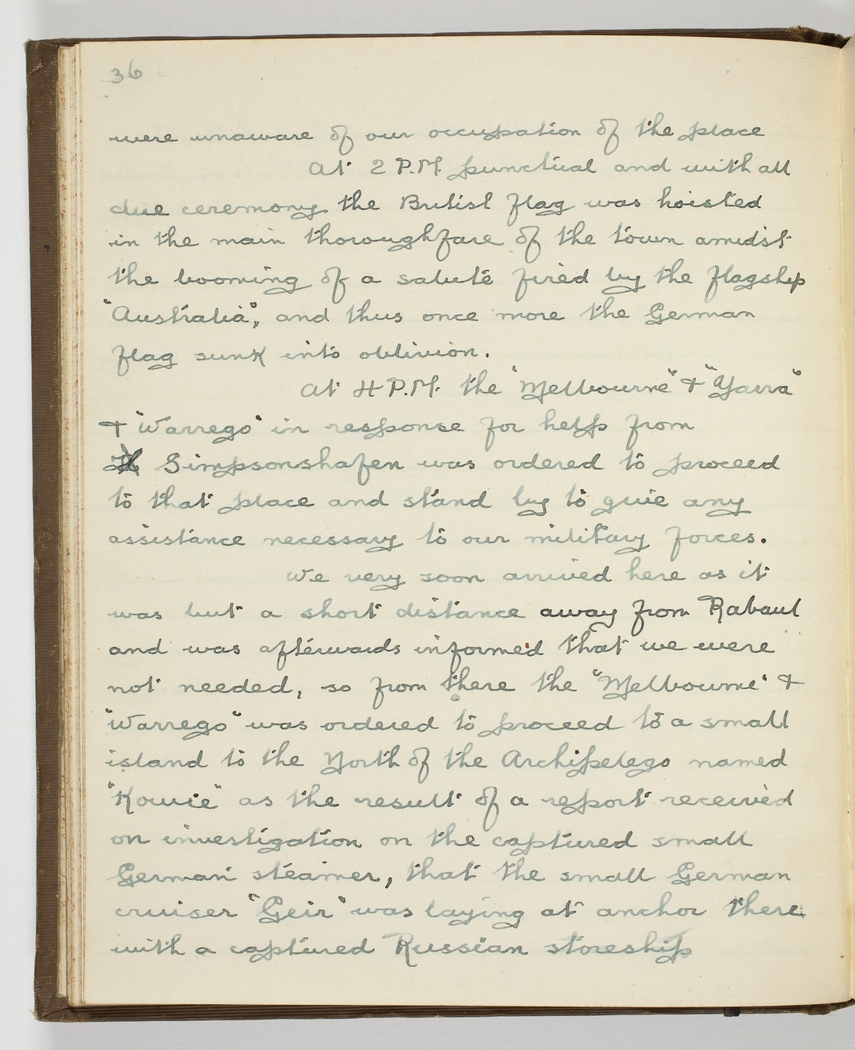 36
were unaware of our occupation of the place
At 2 P.M. punctual and with all
due ceremony the British flag was hoisted
in the main thoroughfare of the town amidst
the booming of a salute fired by the flagship
"Australia", and thus once more the German
flag sunk into oblivion.
At 4 P.M. the "Melbourne" & "Yarra"
& "Warrego" in response for help from
Simpsonshafen was ordered to proceed
to that place and stand by to give any
assistance necessary to our military forces.
We very soon arrived here as it
was but a short distance away from Rabaul
and was afterwards informed that we were
not needed, so from there the "Melbourne" &
"Warrego" was ordered to proceed to a small
island to the North of the Archipelego named
"Kowie" as the result of a report received
on investigation on the captured small
German steamer, that the small German
cruiser "Geir" was laying at anchor there
with a captured Russian storeship